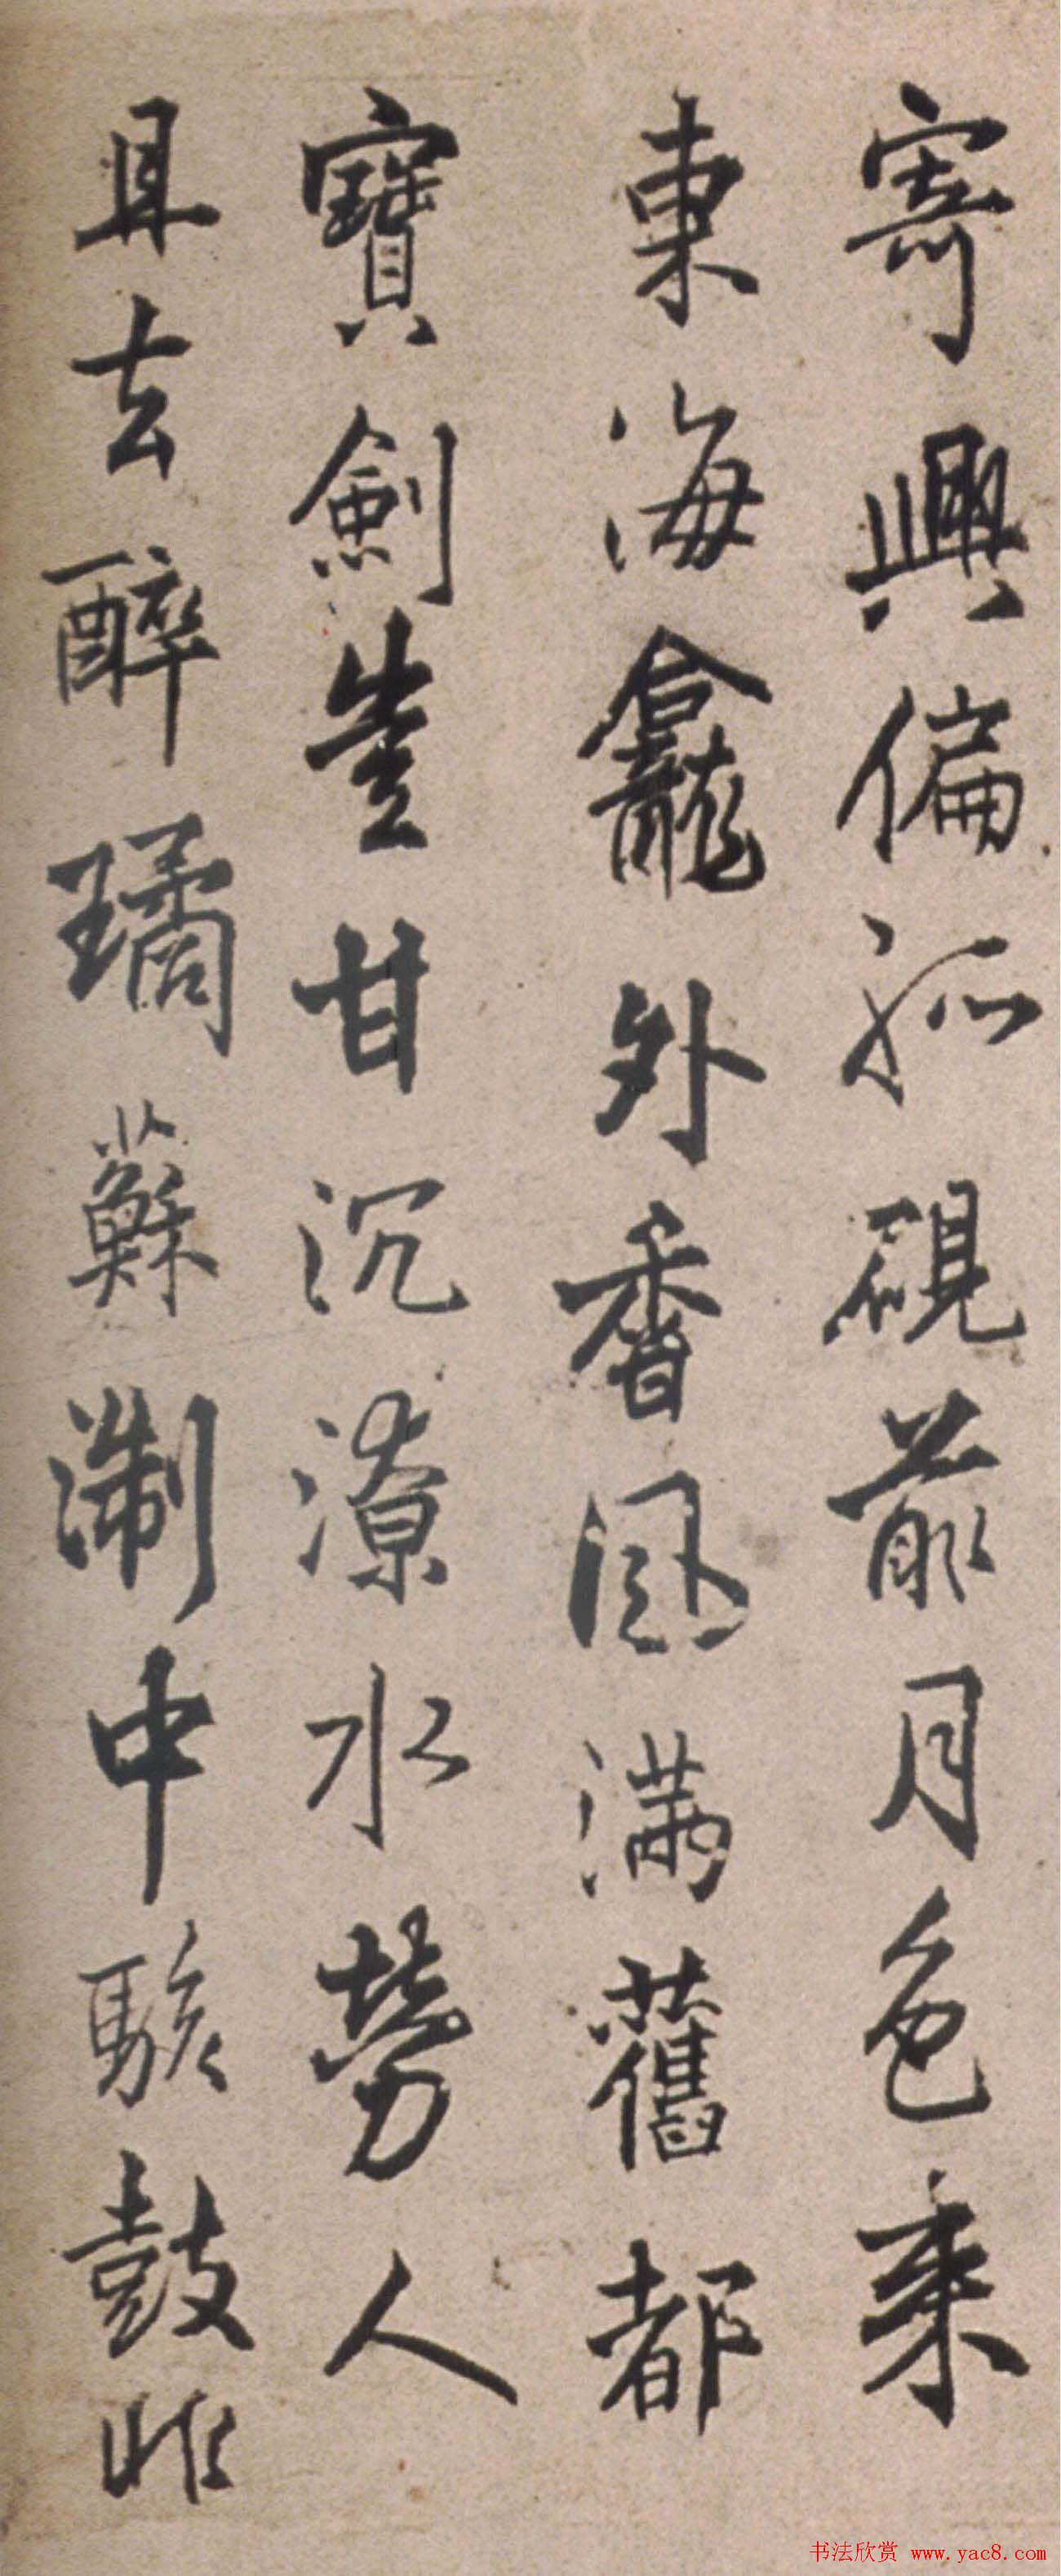 寄興偏孤硯前月色乘
東海龕外香風滿舊都
寶劍豈甘沉潦水勞人
且去醉璚蘇淛中駭鼓惟
书法欣赏 www.yac8.com